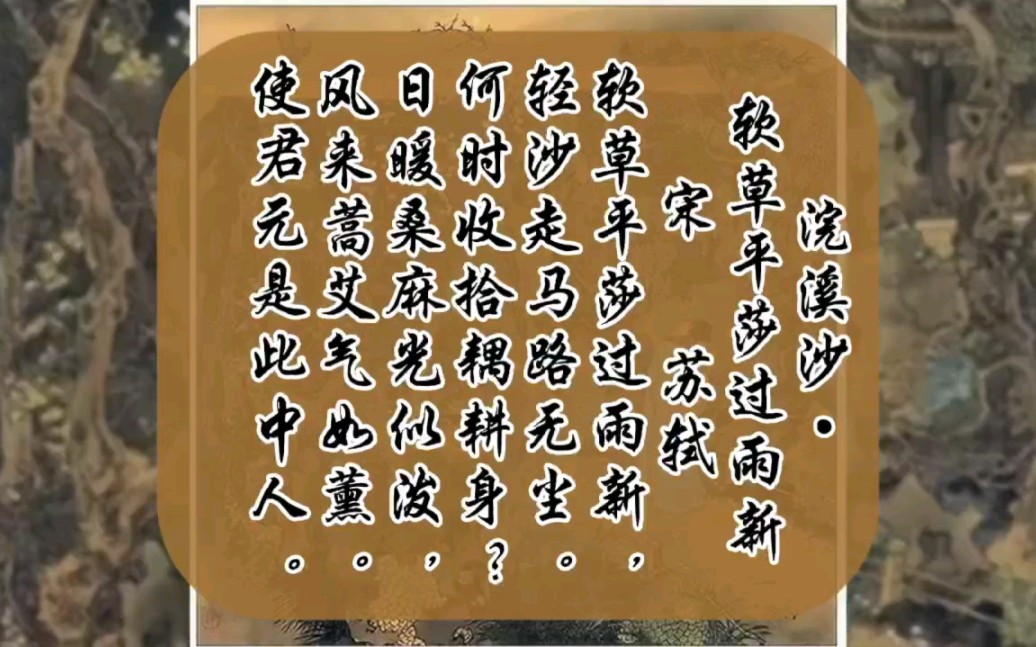 浣溪沙·
软草平莎过雨新
宋 苏轼
软草平莎过雨新，
轻沙走马路无尘。
何时收拾耦耕身？
日暖桑麻光似泼，
风来蒿艾气如薰。
使君元是此中人。